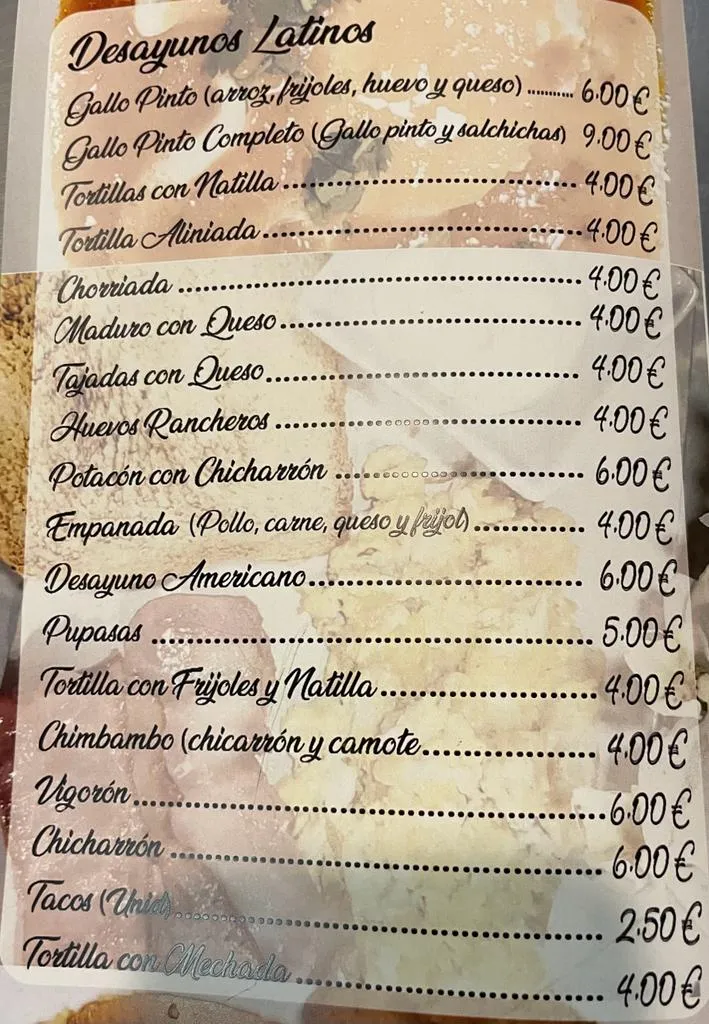 Desayunos Latinos
Gallo Pinto (arroz, frijoles, huevo y queso) .......... 6.00 €
Gallo Pinto Completo (Gallo pinto y salchichas) 9.00 €
Tortillas con Natilla ........................................ 4.00 €
Tortilla Aliniada ........................................... 4.00 €
Chorriada ...................................................... 4.00 €
Maduro con Queso ........................................ 4.00 €
Tajadas con Queso ......................................... 4.00 €
Huevos Rancheros ......................................... 4.00 €
Potacón con Chicharrón ................................. 6.00 €
Empanada (Pollo, carne, queso y frijol) .............. 4.00 €
Desayuno Americano .................................... 6.00 €
Pupasas ......................................................... 5.00 €
Tortilla con Frijoles y Natilla ........................... 4.00 €
Chimbambo (chicarrón y camote ..................... 4.00 €
Vigorón ......................................................... 6.00 €
Chicharrón .................................................... 6.00 €
Tacos (Unid) .................................................. 2.50 €
Tortilla con Mechada ..................................... 4.00 €